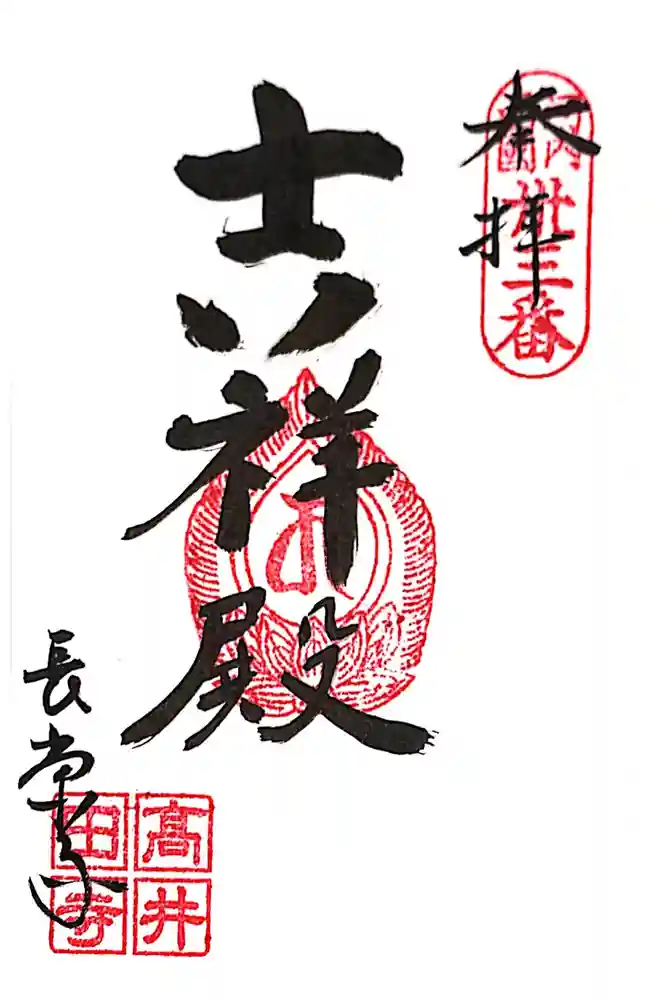 奉拝
三番
吉祥殿
長栄寺
高井
田寺